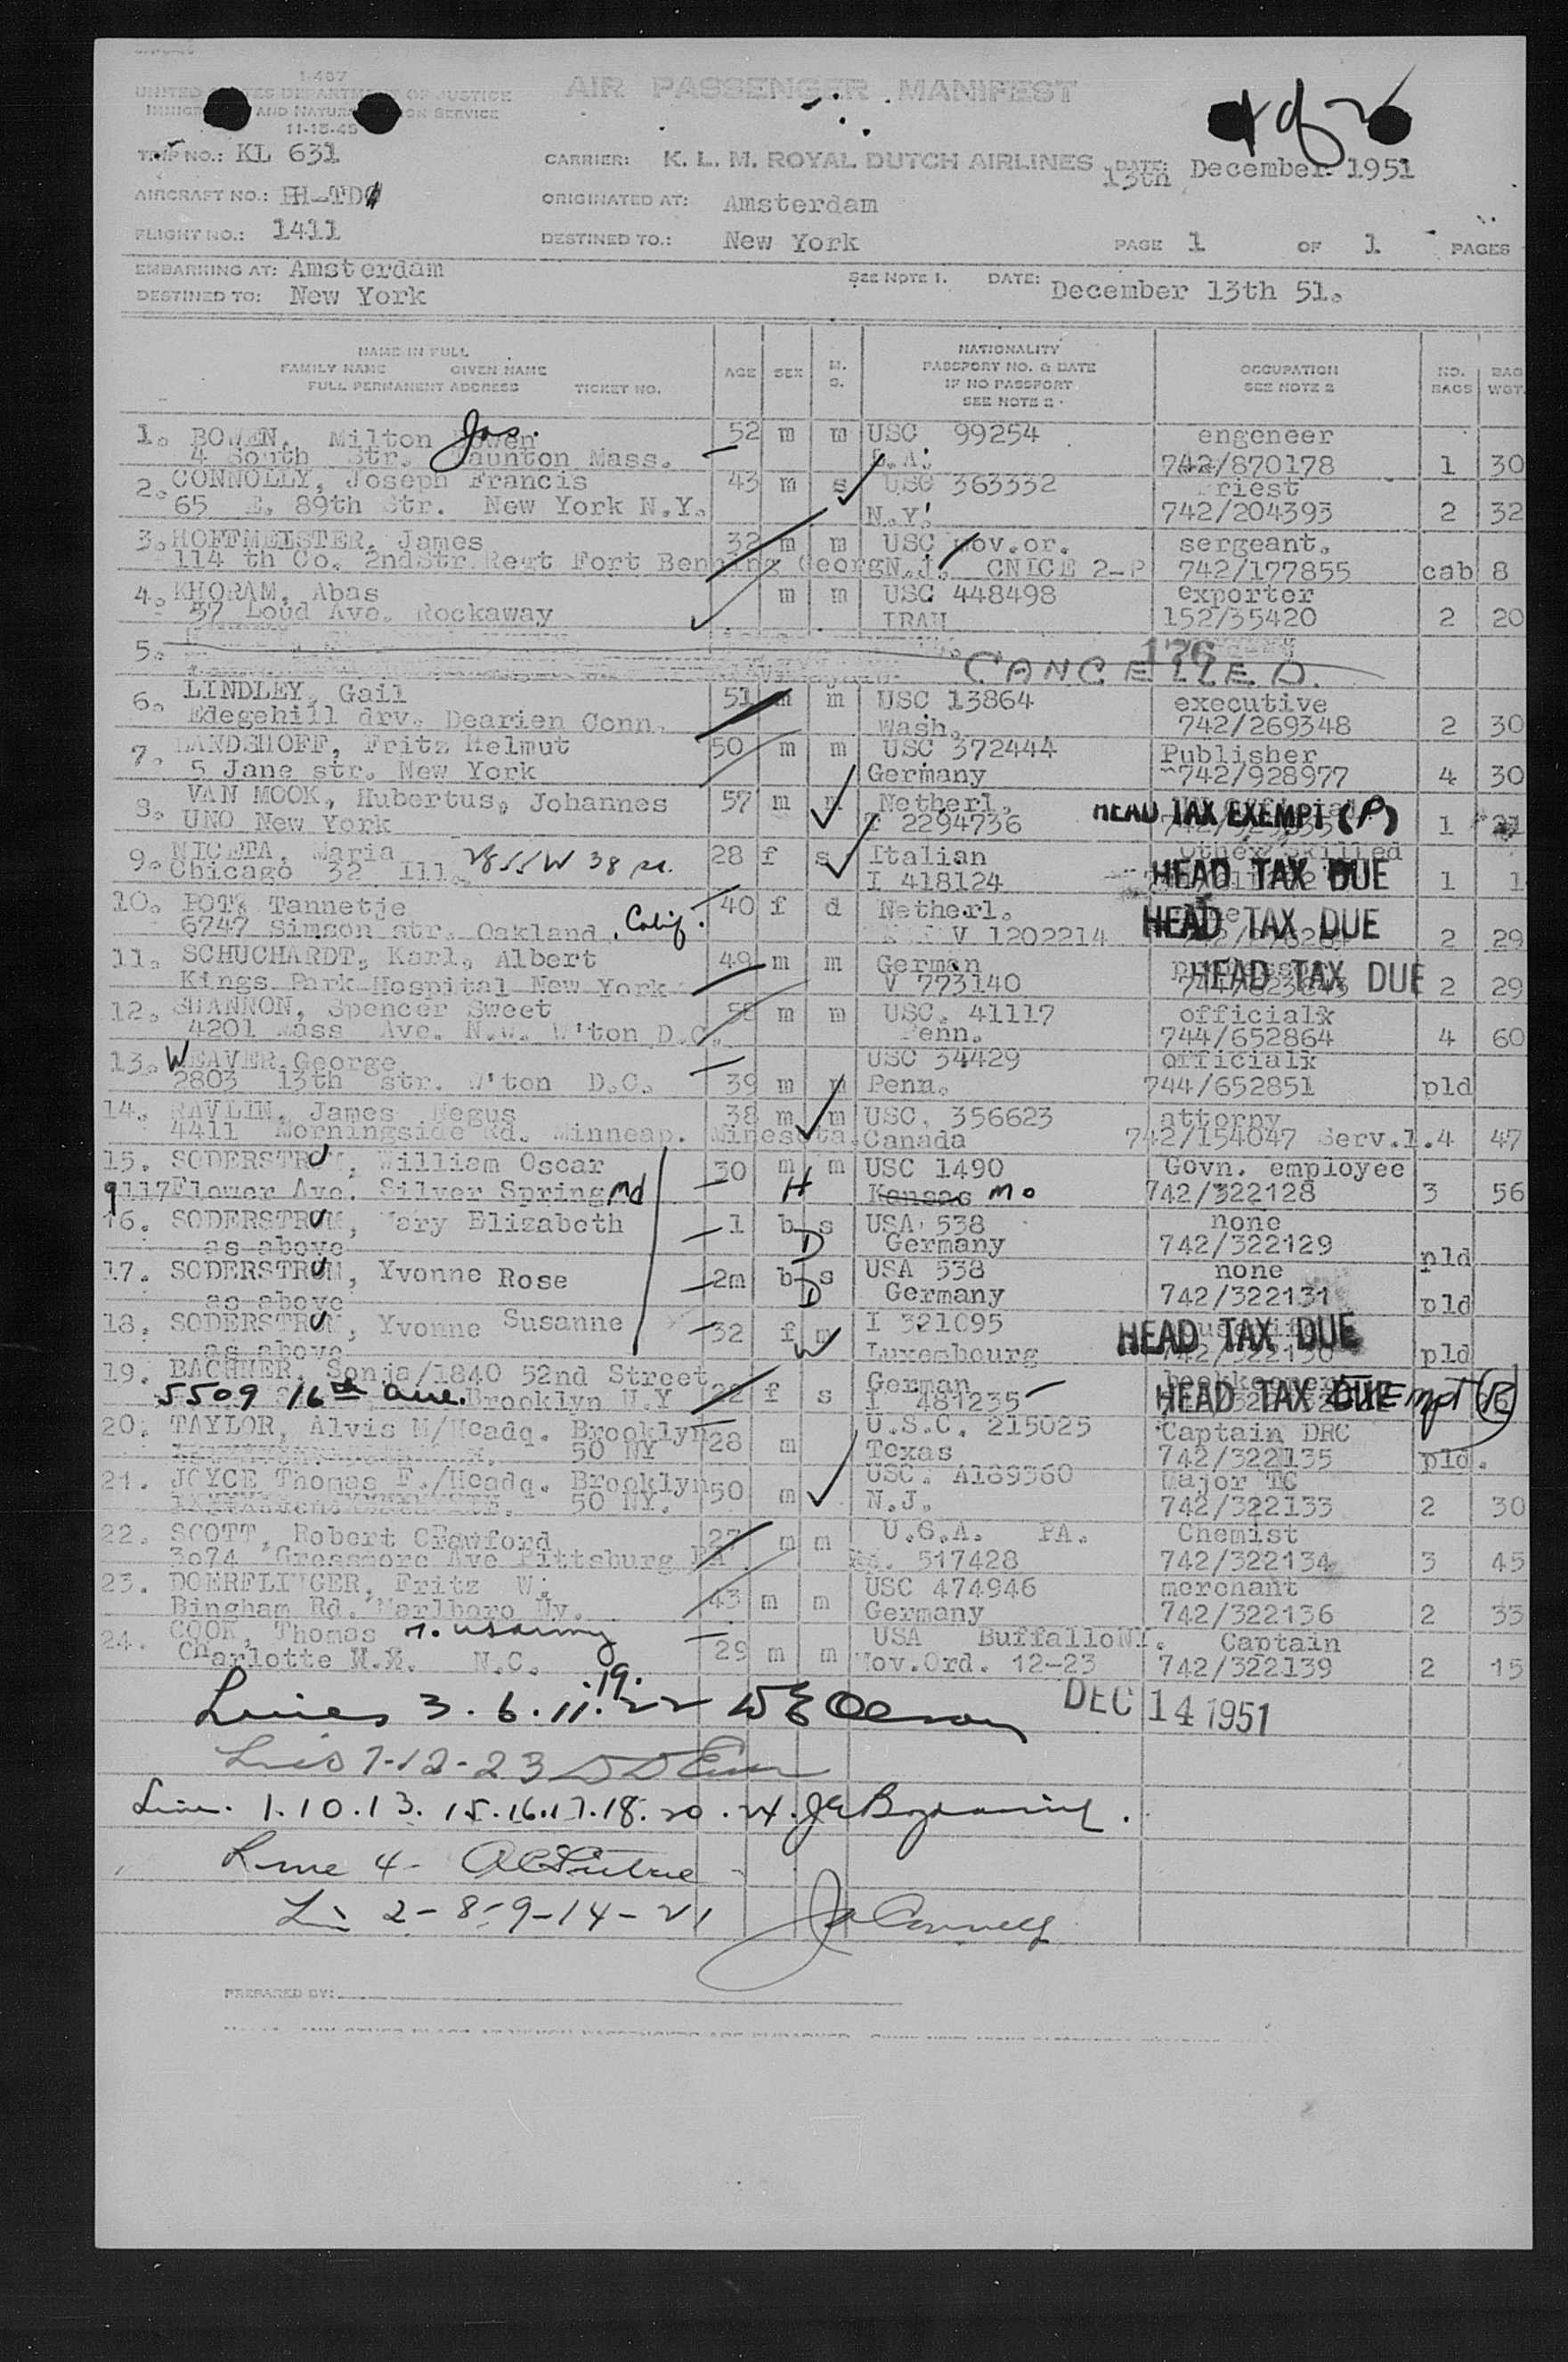 I-487
UNITED STATES DEPARTMENT OF JUSTICE
IMMIGRATION AND NATURALIZATION SERVICE
11-15-45
AIR PASSENGER MANIFEST
TRIP NO.: KL 631
CARRIER: K. L. M. ROYAL DUTCH AIRLINES DATE: 13th December 1951
AIRCRAFT NO.: PH-TD
ORIGINATED AT: Amsterdam
FLIGHT NO.: 1411
DESTINED TO.: New York
PAGE 1 OF 1 PAGES
EMBARKING AT: Amsterdam
SEE NOTE 1. DATE: December 13th 51.
DESTINED TO: New York
NAME IN FULL
FAMILY NAME GIVEN NAME
FULL PERMANENT ADDRESS TICKET NO.
AGE SEX M. S.
NATIONALITY
PASSPORT NO. & DATE
IF NO PASSPORT
SEE NOTE 2
OCCUPATION
SEE NOTE 2
NO. BAGS
BAG WGT.
1. BOWEN, Milton Bowen Jas. 52 m m USC 99254 engeneer
4 South Str. Taunton Mass. 742/870178 1 30
2. CONNOLLY, Joseph Francis 43 m s USC 363332 Priest
65 E. 89th Str. New York N.Y. N.Y. 742/204393 2 32
3. HOFFMEISTER, James 32 m m USC Mov.or. sergeant.
114 th Co. 2ndStr.Regt Fort Benning Georg N.J. CNICE 2-P 742/177855 cab 8
4. KHORAM, Abas m m USC 448498 exporter
57 Loud Ave. Rockaway IRAN 152/35420 2 20
5. 176 CANCELLED
6. LINDLEY, Gail 51 m m USC 13864 executive
Edegehill drv. Dearien Conn. Wash. 742/269348 2 30
7. LANDSHOFF, Fritz Helmut 50 m m USC 372444 Publisher
5 Jane str. New York Germany 742/928977 4 30
8. VAN MOOK, Hubertus, Johannes 57 m m Netherl. HEAD TAX EXEMPT (P)
UNO New York 2294736 1 21
9. NICETA, Maria 28 f s Italian Other Skilled
Chicago 32 Ill. I 418124 HEAD TAX DUE 1 1
10. POT, Tannetje 40 f d Netherl. HEAD TAX DUE
6747 Simson str. Oakland, Calif. V 1202214 2 29
11. SCHUCHARDT, Karl, Albert 49 m m German HEAD TAX DUE
Kings Park Hospital New York V 773140 2 29
12. SHANNON, Spencer Sweet 58 m m USC. 41117 officialx
4201 Mass Ave. N.W. W'ton D.C. Penn. 744/652864 4 60
13. WEAVER, George USC 34429 officialx
2803 13th str. W'ton D.C. 39 m m Penn. 744/652851 pld
14. RAVLIN, James Negus 38 m m USC. 356623 attorny
4411 Morningside Rd. Minneap. Minesota. Canada 742/154047 Serv.1. 4 47
15. SODERSTROM, William Oscar 30 m m USC 1490 Govn. employee
9117 Flower Ave. Silver Spring Md H Kansas Mo 742/322128 3 56
16. SODERSTROM, Mary Elizabeth 1 b s USA 538 none
as above D Germany 742/322129 pld
17. SODERSTROM, Yvonne Rose 2m b s USA 538 none
as above D Germany 742/322131 pld
18. SODERSTROM, Yvonne Susanne 32 f m I 321095
as above W Luxembourg HEAD TAX DUE 742/322130 pld
19. BACHNER, Sonja/1840 52nd Street German bookkeeper
5509 16th Ave. Brooklyn N.Y 22 f s I 481235 HEAD TAX DUE Exempt
20. TAYLOR, Alvis M/Headq. Brooklyn 28 m U.S.C. 215025 Captain DRC
50 NY Texas 742/322135 pld.
21. JOYCE Thomas F./Headq. Brooklyn 50 m USC. A189360 Major TC
50 NY. N.J. 742/322133 2 30
22. SCOTT, Robert Crawford 27 m m U.S.A. PA. Chemist
3074 Grossmore Ave Pittsburg PA 517428 742/322134 3 45
23. DOERFLINGER, Fritz W. 43 m m USC 474946 merchant
Bingham Rd. Marlboro Ny. Germany 742/322136 2 33
24. COOK, Thomas USArmy 29 m m USA Buffallo NY. Captain
Charlotte N.C. Mov.Ord. 12-23 742/322139 2 15
Lines 3. 6. 11. 19. 22 W E Olson
DEC 14 1951
7-12-23
Line. 1. 10. 13. 15. 16. 17. 18. 20. 24.
Line 4-
Li 2-8-9-14-21
PREPARED BY: